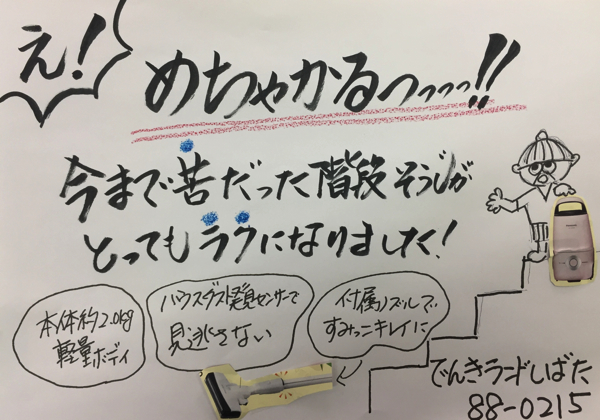 え!
めちゃかるっっっっ!!
今まで苦だった階段そうじが
とってもラクになりました!
本体約2.0kg
軽量ボディ
ハウスダスト発見センサーで
見逃さない
付属ノズルで
すみっこキレイに
でんきランドしばた
88-0215